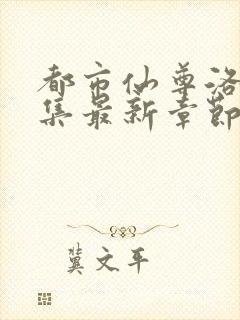 都市仙尊洛
集最新章节
冀文平